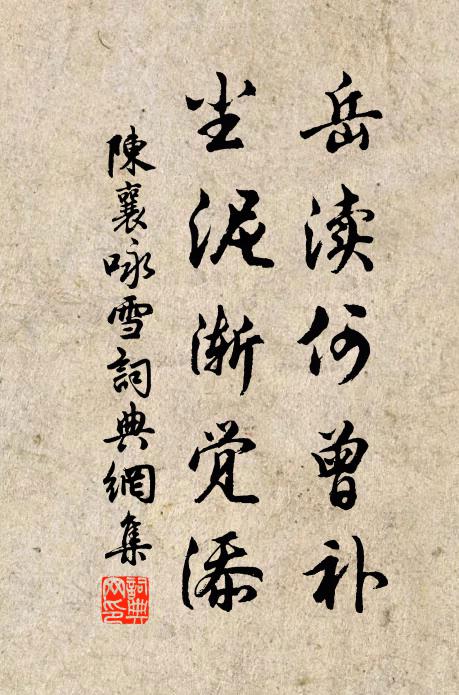 岳渎何曾补
尘泥渐觉添
陳襄咏雪詞典網集
詞典網印